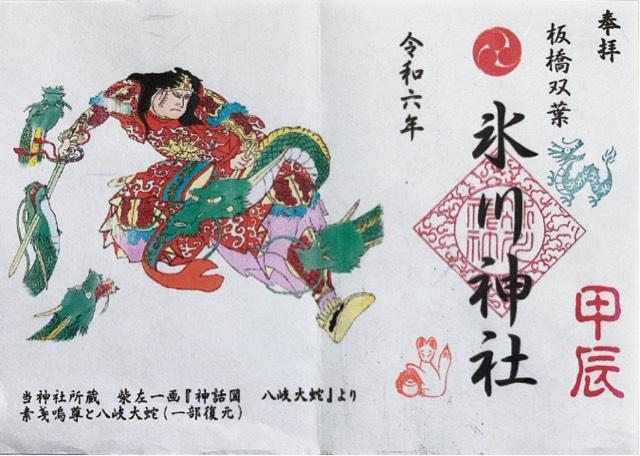 奉拝
板橋双葉
氷川神社
甲辰
令和六年
当神社所蔵　柴左一画『神話図　八岐大蛇』より
素戔嗚尊と八岐大蛇（一部復元）